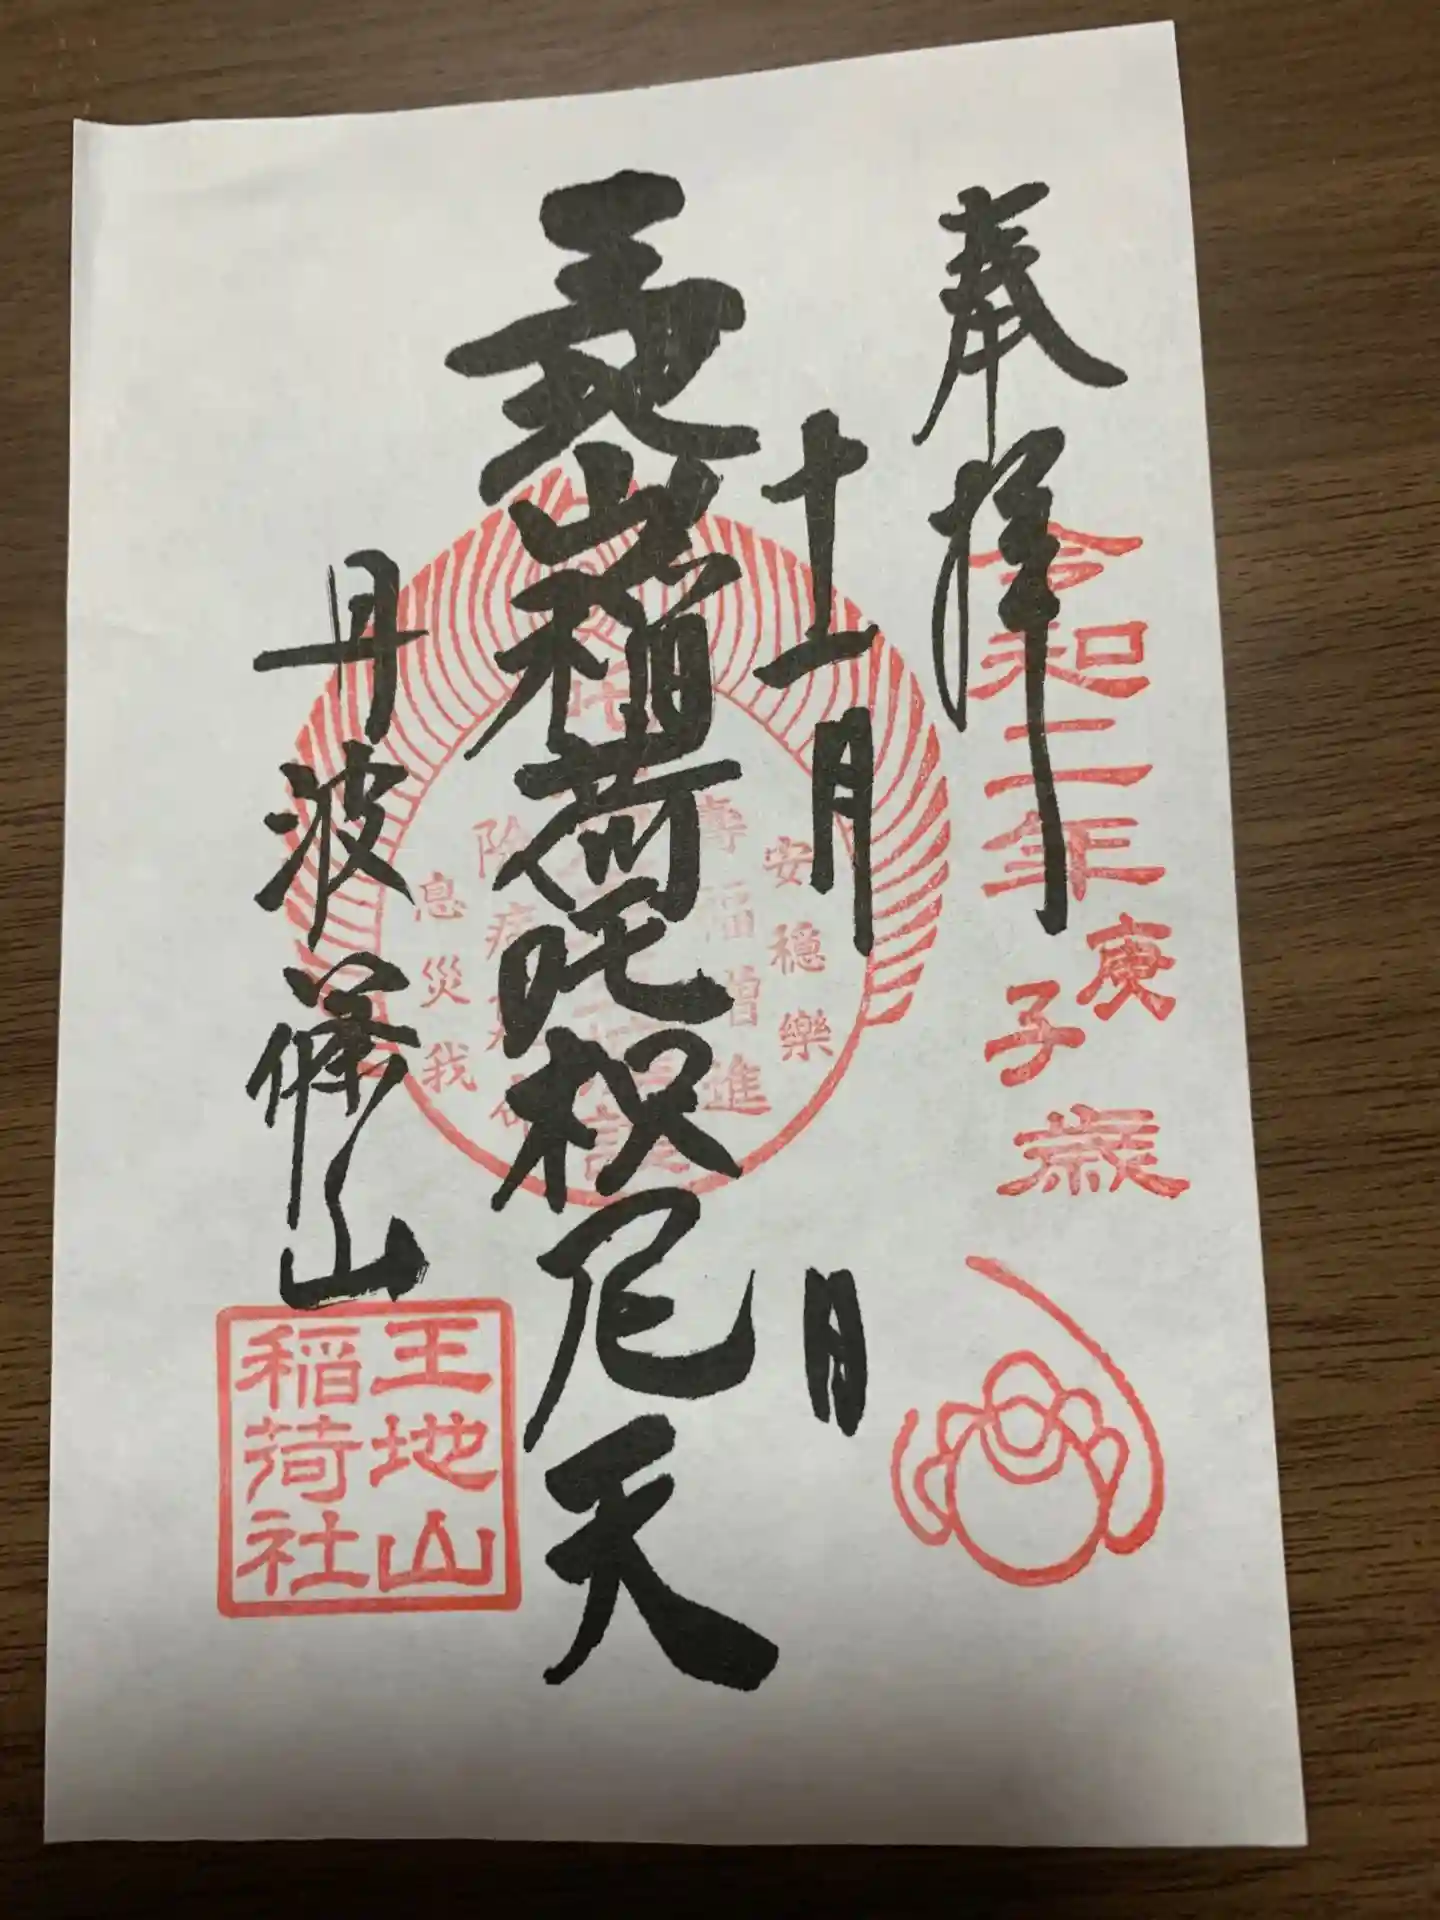 奉拝
令和二年
庚子歳
十一月
日
王地山稲荷吒枳尼天
安穏樂
壽福増進
除病
息災我
丹波篠山
王地山
稲荷社